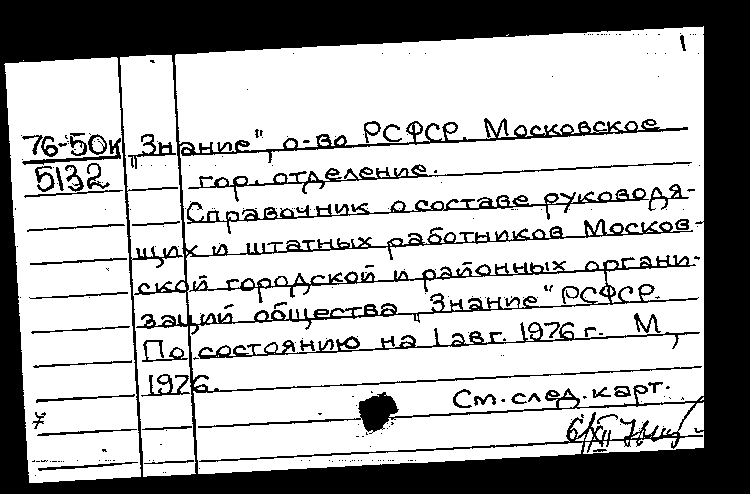 1
76-50к „Знание", о-во РСФСР. Московское
5132 гор. отделение.
Справочник о составе руководя-
щих и штатных работников Москов-
ской городской и районных органи-
заций общества „Знание" РСФСР.
По состоянию на 1 авг. 1976 г. М.,
1976.
См. след. карт.
7
6/XII